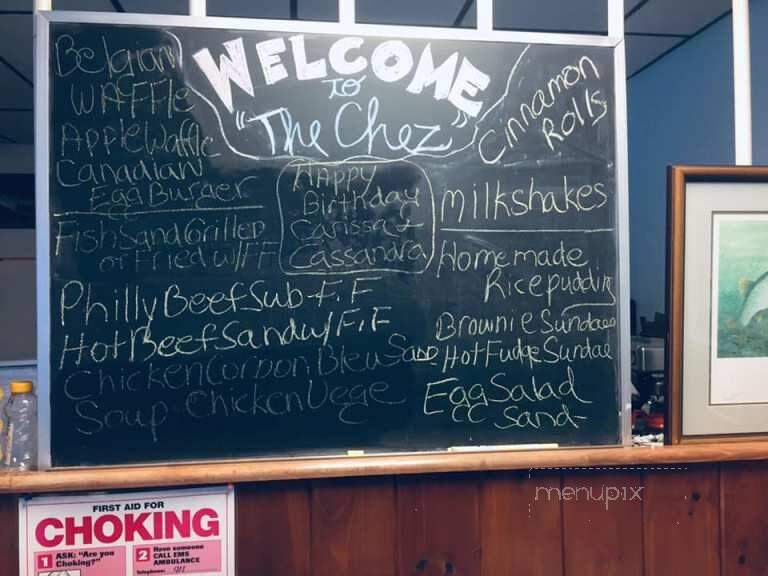 WELCOME
TO
"The Chez"
Belgian
WAFFle
Apple Waffle
Canadian
Egg Burger
Fish Sand Grilled
or Fried w/FF
Philly Beef Sub-F.F
Hot Beef Sand w/F.F
Chicken Cordon Bleu Sand
Soup-Chicken Vege
HAppy
Birthday
Carissa &
Cassandra
Cinnamon
Rolls
Milkshakes
Homemade
Rice pudding
Brownie Sundae
Hot Fudge Sundae
Egg Salad
CC Sand-
menupix
FIRST AID FOR
CHOKING
1 ASK: "Are you
Choking?"
2 Have someone
CALL EMS
AMBULANCE
Telephone: